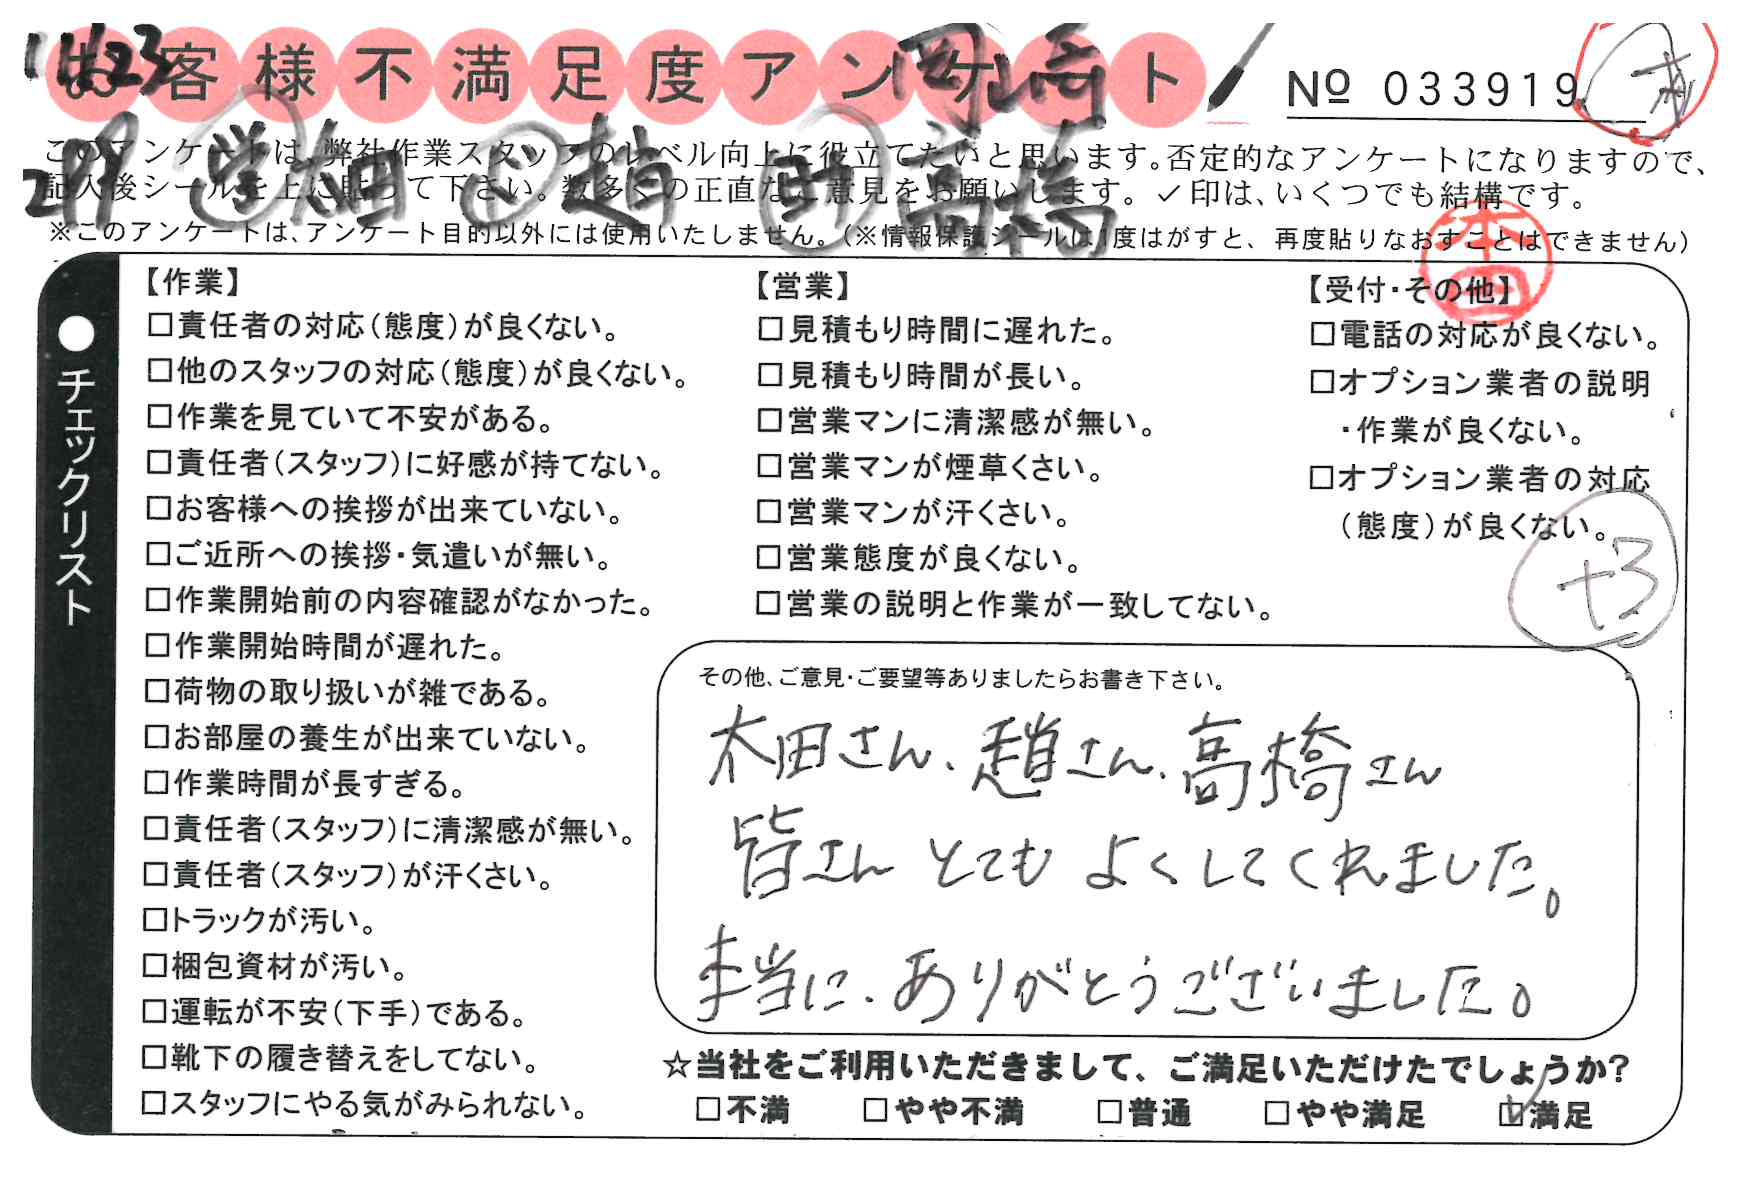 11/23
お客様不満足度アンケート
№ 033919
このアンケートは、弊社作業スタッフのレベル向上に役立てたいと思います。否定的なアンケートになりますので、
記入後シールを上に貼って下さい。数多くの正直なご意見をお願いします。✓印は、いくつでも結構です。
※このアンケートは、アンケート目的以外には使用いたしません。(※情報保護シールは1度はがすと、再度貼りなおすことはできません)
趙 高橋
本田
●チェックリスト
【作業】
□責任者の対応(態度)が良くない。
□他のスタッフの対応(態度)が良くない。
□作業を見ていて不安がある。
□責任者(スタッフ)に好感が持てない。
□お客様への挨拶が出来ていない。
□ご近所への挨拶・気遣いが無い。
□作業開始前の内容確認がなかった。
□作業開始時間が遅れた。
□荷物の取り扱いが雑である。
□お部屋の養生が出来ていない。
□作業時間が長すぎる。
□責任者(スタッフ)に清潔感が無い。
□責任者(スタッフ)が汗くさい。
□トラックが汚い。
□梱包資材が汚い。
□運転が不安(下手)である。
□靴下の履き替えをしてない。
□スタッフにやる気がみられない。
【営業】
□見積もり時間に遅れた。
□見積もり時間が長い。
□営業マンに清潔感が無い。
□営業マンが煙草くさい。
□営業マンが汗くさい。
□営業態度が良くない。
□営業の説明と作業が一致してない。
【受付・その他】
□電話の対応が良くない。
□オプション業者の説明
・作業が良くない。
□オプション業者の対応
(態度)が良くない。
+3
その他、ご意見・ご要望等ありましたらお書き下さい。
太田さん、趙さん、高橋さん
皆さん とても よくしてくれました。
本当に、ありがとうございました。
☆当社をご利用いただきまして、ご満足いただけたでしょうか?
□不満 □やや不満 □普通 □やや満足 ☑満足